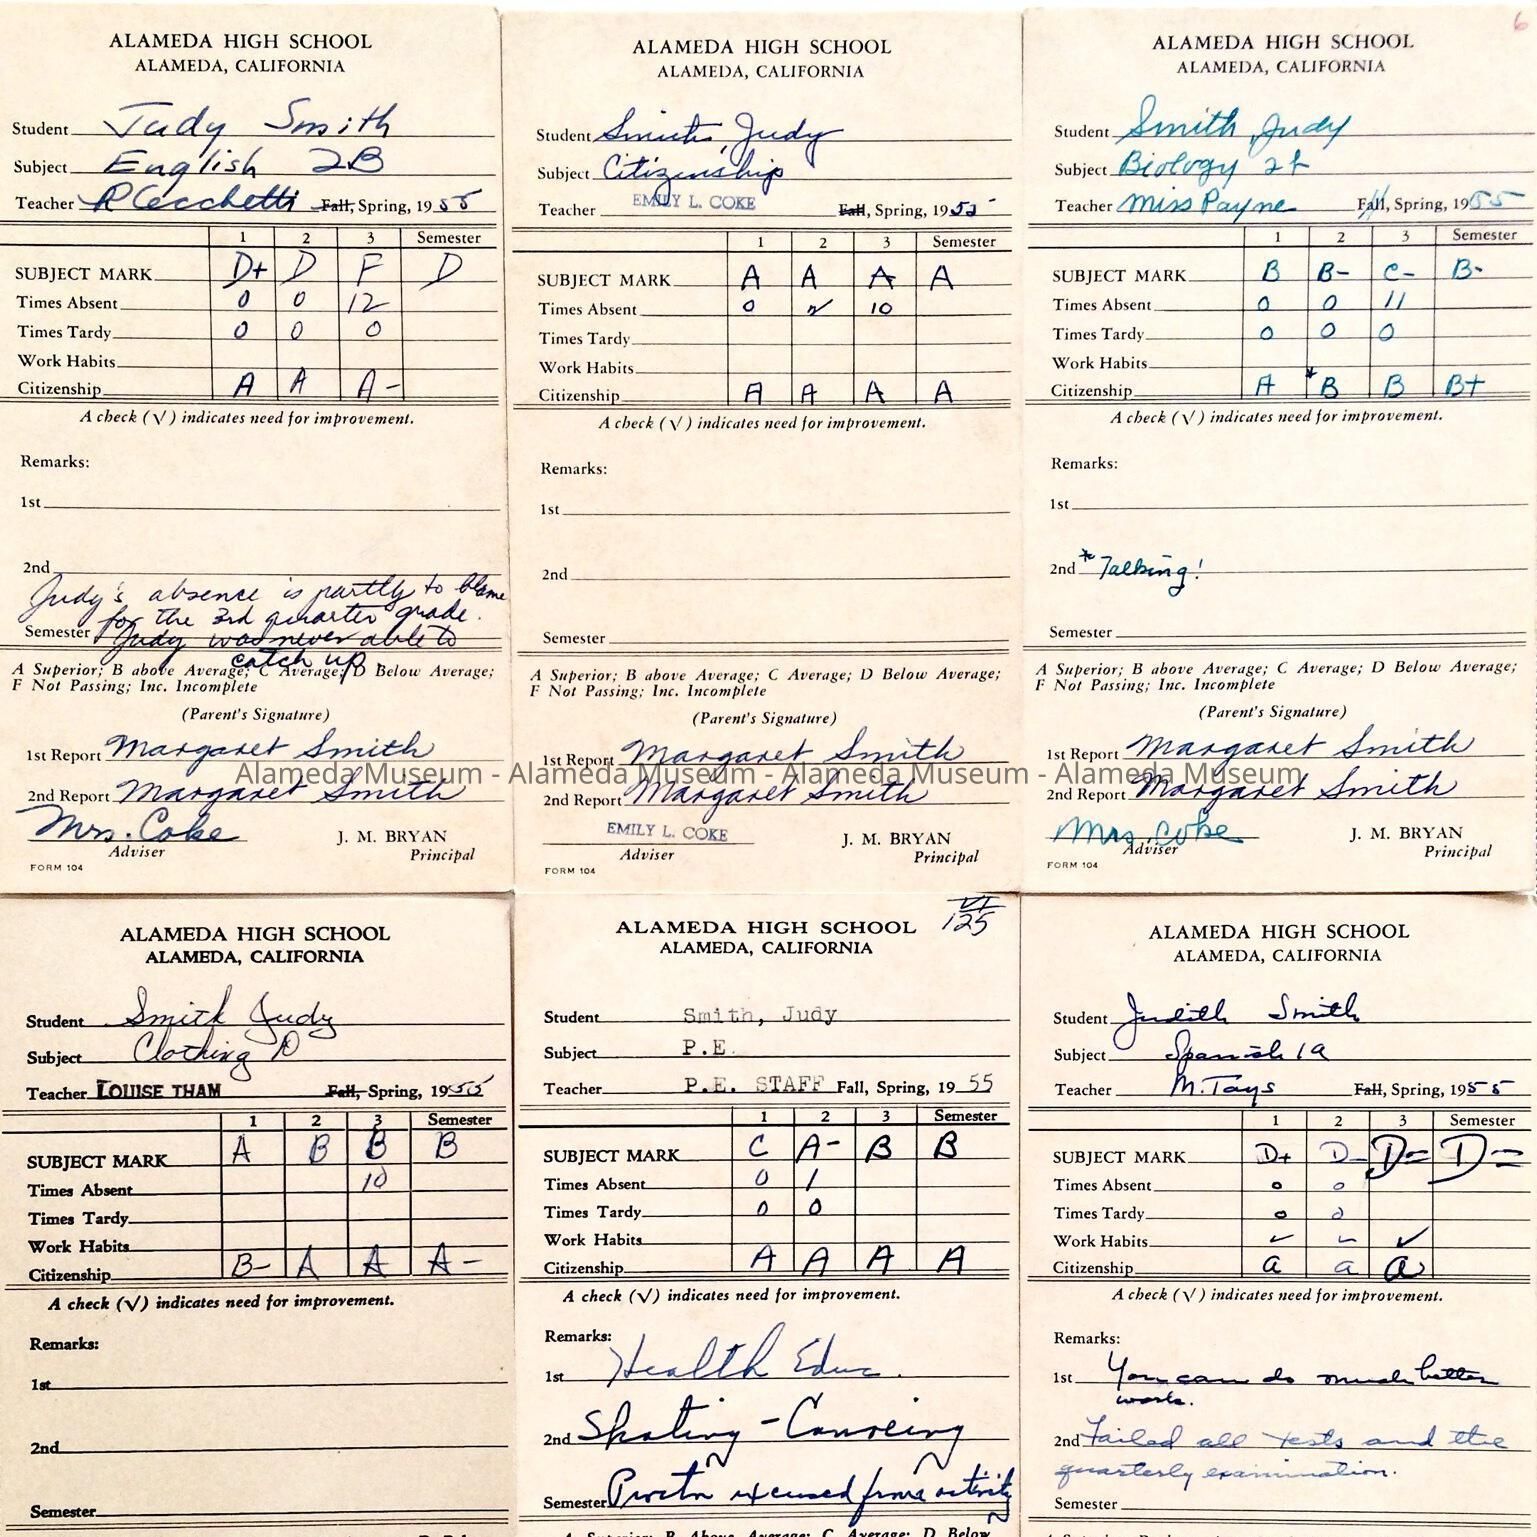 ALAMEDA HIGH SCHOOL
ALAMEDA, CALIFORNIA
Student Judy Smith
Subject English 2B
Teacher R Cecchetti Fall, Spring, 1955
1 2 3 Semester
SUBJECT MARK D+ D F D
Times Absent 0 0 12
Times Tardy 0 0 0
Work Habits
Citizenship A A A-
A check (√) indicates need for improvement.
Remarks:
1st
2nd
Judy's absence is partly to blame
for the 3rd quarter grade.
Semester Judy was never able to
catch up
A Superior; B above Average; C Average; D Below Average;
F Not Passing; Inc. Incomplete
(Parent's Signature)
1st Report Margaret Smith
2nd Report Margaret Smith
Mrs. Coke J. M. BRYAN
Adviser Principal
FORM 104
ALAMEDA HIGH SCHOOL
ALAMEDA, CALIFORNIA
Student Smith, Judy
Subject Citizenship
Teacher EMILY L. COKE Fall, Spring, 1955
1 2 3 Semester
SUBJECT MARK A A A A
Times Absent 0 10
Times Tardy
Work Habits
Citizenship A A A A
A check (√) indicates need for improvement.
Remarks:
1st
2nd
Semester
A Superior; B above Average; C Average; D Below Average;
F Not Passing; Inc. Incomplete
(Parent's Signature)
1st Report Margaret Smith
2nd Report Margaret Smith
EMILY L. COKE J. M. BRYAN
Adviser Principal
FORM 104
6
ALAMEDA HIGH SCHOOL
ALAMEDA, CALIFORNIA
Student Smith, Judy
Subject Biology
Teacher Miss Payne Fall, Spring, 1955
1 2 3 Semester
SUBJECT MARK B B- C- B-
Times Absent 0 0 11
Times Tardy 0 0 0
Work Habits
Citizenship A *B B B+
A check (√) indicates need for improvement.
Remarks:
1st
2nd *Talking!
Semester
A Superior; B above Average; C Average; D Below Average;
F Not Passing; Inc. Incomplete
(Parent's Signature)
1st Report Margaret Smith
2nd Report Margaret Smith
Mrs. Coke J. M. BRYAN
Adviser Principal
FORM 104
Alameda Museum - Alameda Museum - Alameda Museum - Alameda Museum
ALAMEDA HIGH SCHOOL
ALAMEDA, CALIFORNIA
Student Smith Judy
Subject Clothing
Teacher LOUISE THAM Fall, Spring, 1955
1 2 3 Semester
SUBJECT MARK A B B B
Times Absent 10
Times Tardy
Work Habits
Citizenship B- A A A-
A check (√) indicates need for improvement.
Remarks:
1st
2nd
Semester
VI
125
ALAMEDA HIGH SCHOOL
ALAMEDA, CALIFORNIA
Student Smith, Judy
Subject P.E.
Teacher P.E. STAFF Fall, Spring, 1955
1 2 3 Semester
SUBJECT MARK C A- B B
Times Absent 0 1
Times Tardy 0 0
Work Habits
Citizenship A A A A
A check (√) indicates need for improvement.
Remarks:
1st Health Educ.
2nd Skating - Canoeing
Semester Proctor excused from activity
A Superior; B Above Average; C Average; D Below
ALAMEDA HIGH SCHOOL
ALAMEDA, CALIFORNIA
Student Judith Smith
Subject Spanish 1a
Teacher M. Tays Fall, Spring, 1955
1 2 3 Semester
SUBJECT MARK D+ D- D- D-
Times Absent 0 0
Times Tardy 0 0
Work Habits ✓ ✓ ✓
Citizenship a a a
A check (√) indicates need for improvement.
Remarks:
1st You can do much better
work.
2nd Failed all tests and the
quarterly examination.
Semester